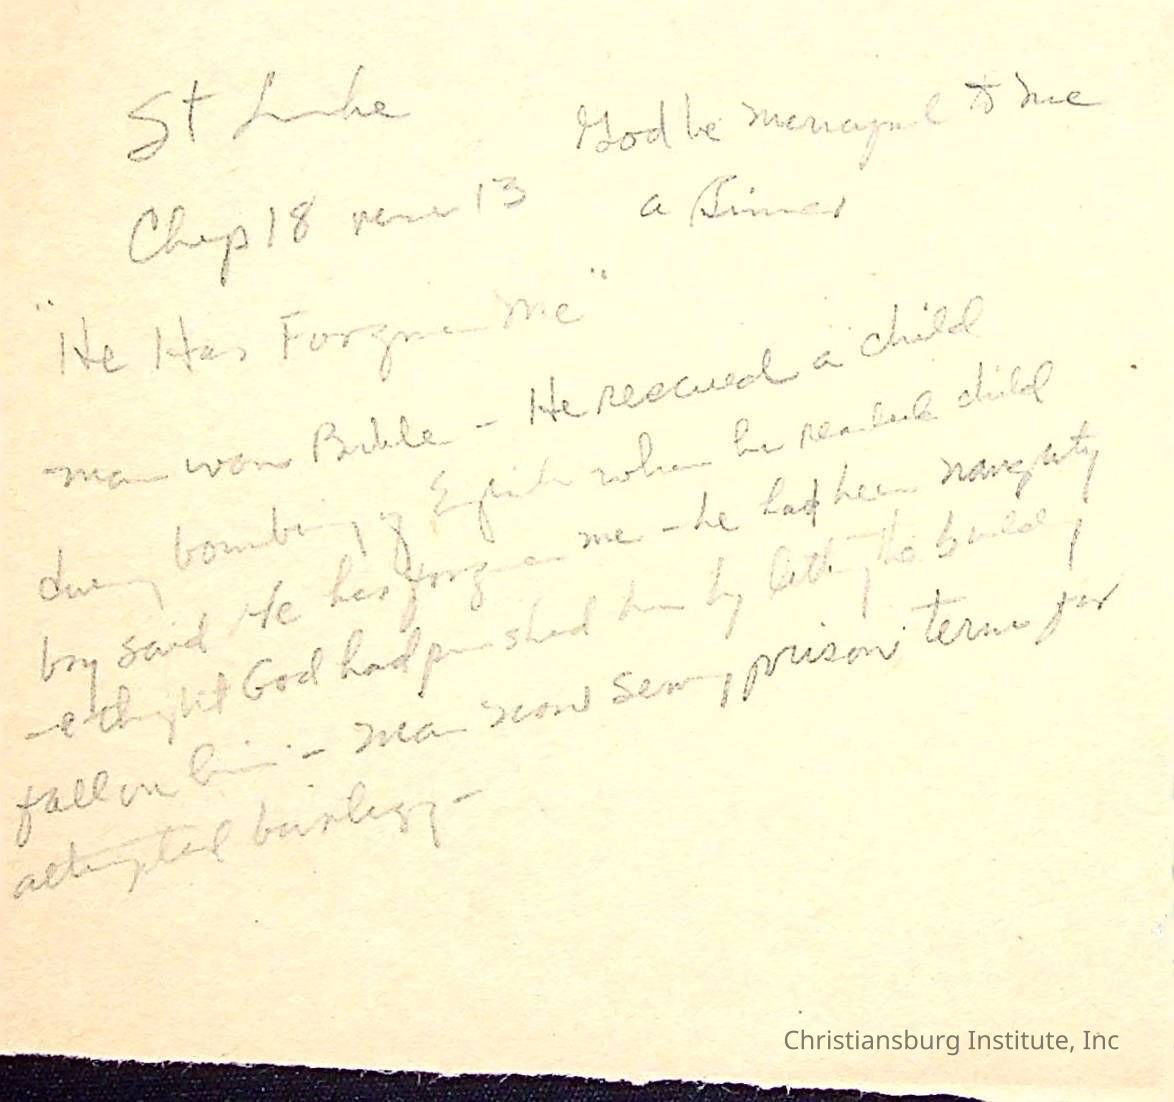 St Luke
God be merciful to me
Chap 18 verse 13
a Sinner
"He Has Forgiven Me"
man won Bible - He rescued a child
during bombing of English when he reached child
boy said He has forgiven me - he had been naughty
- e thought God had punished him by letting the building
fall on him - man now serving prison term for
attempted burglary -
Christiansburg Institute, Inc